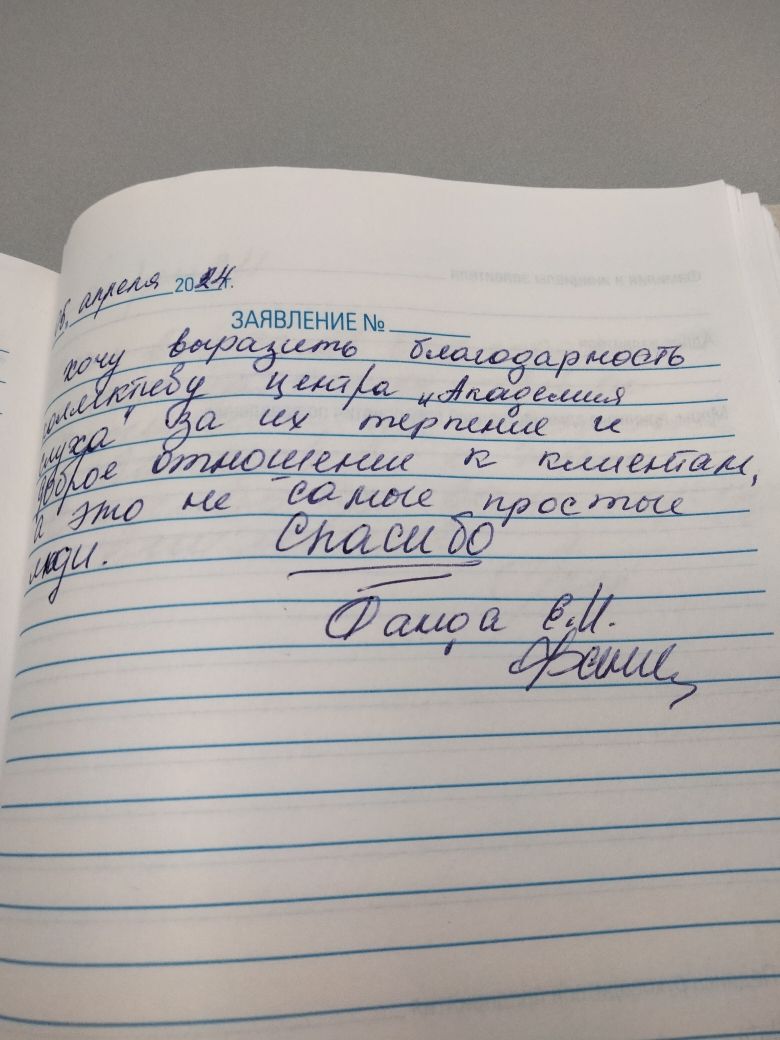 апреля 2024г.
ЗАЯВЛЕНИЕ №
хочу выразить благодарность
коллективу центра „Академия
слуха" за их терпение и
доброе отношение к клиентам,
а это не самые простые
люди. Спасибо
Фанца Е.И.